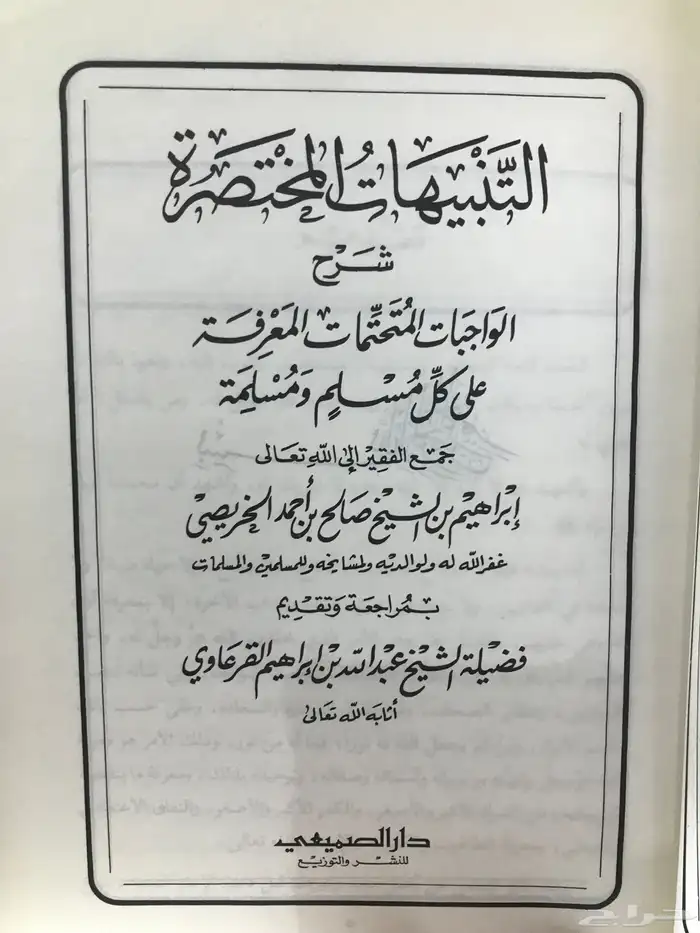 التَّنْبِيهَاتُ المُخْتَصَرَة
شَرْح
الوَاجِبَات المُتَحَتِّمَات المَعْرِفَة
عَلى كُلِّ مُسْلِمٍ وَمُسْلِمَة
جَمْع الفَقِيْر إِلى اللَّهِ تَعَالى
إبْرَاهِيْم بن الشَّيْخ صَالح بن أَحمد الخُرَيصِي
غفر الله له ولوالديه ولمشايخه وللمسلمين والمسلمات
بِمُراجَعَة وَتَقْدِيم
فضيلة الشَّيْخ عَبْد اللَّه بن إبْرَاهِيم القَرعَاوي
أثابَه اللَّه تَعَالىٰ
دار الصميعي
للنشر والتوزيع
حراج